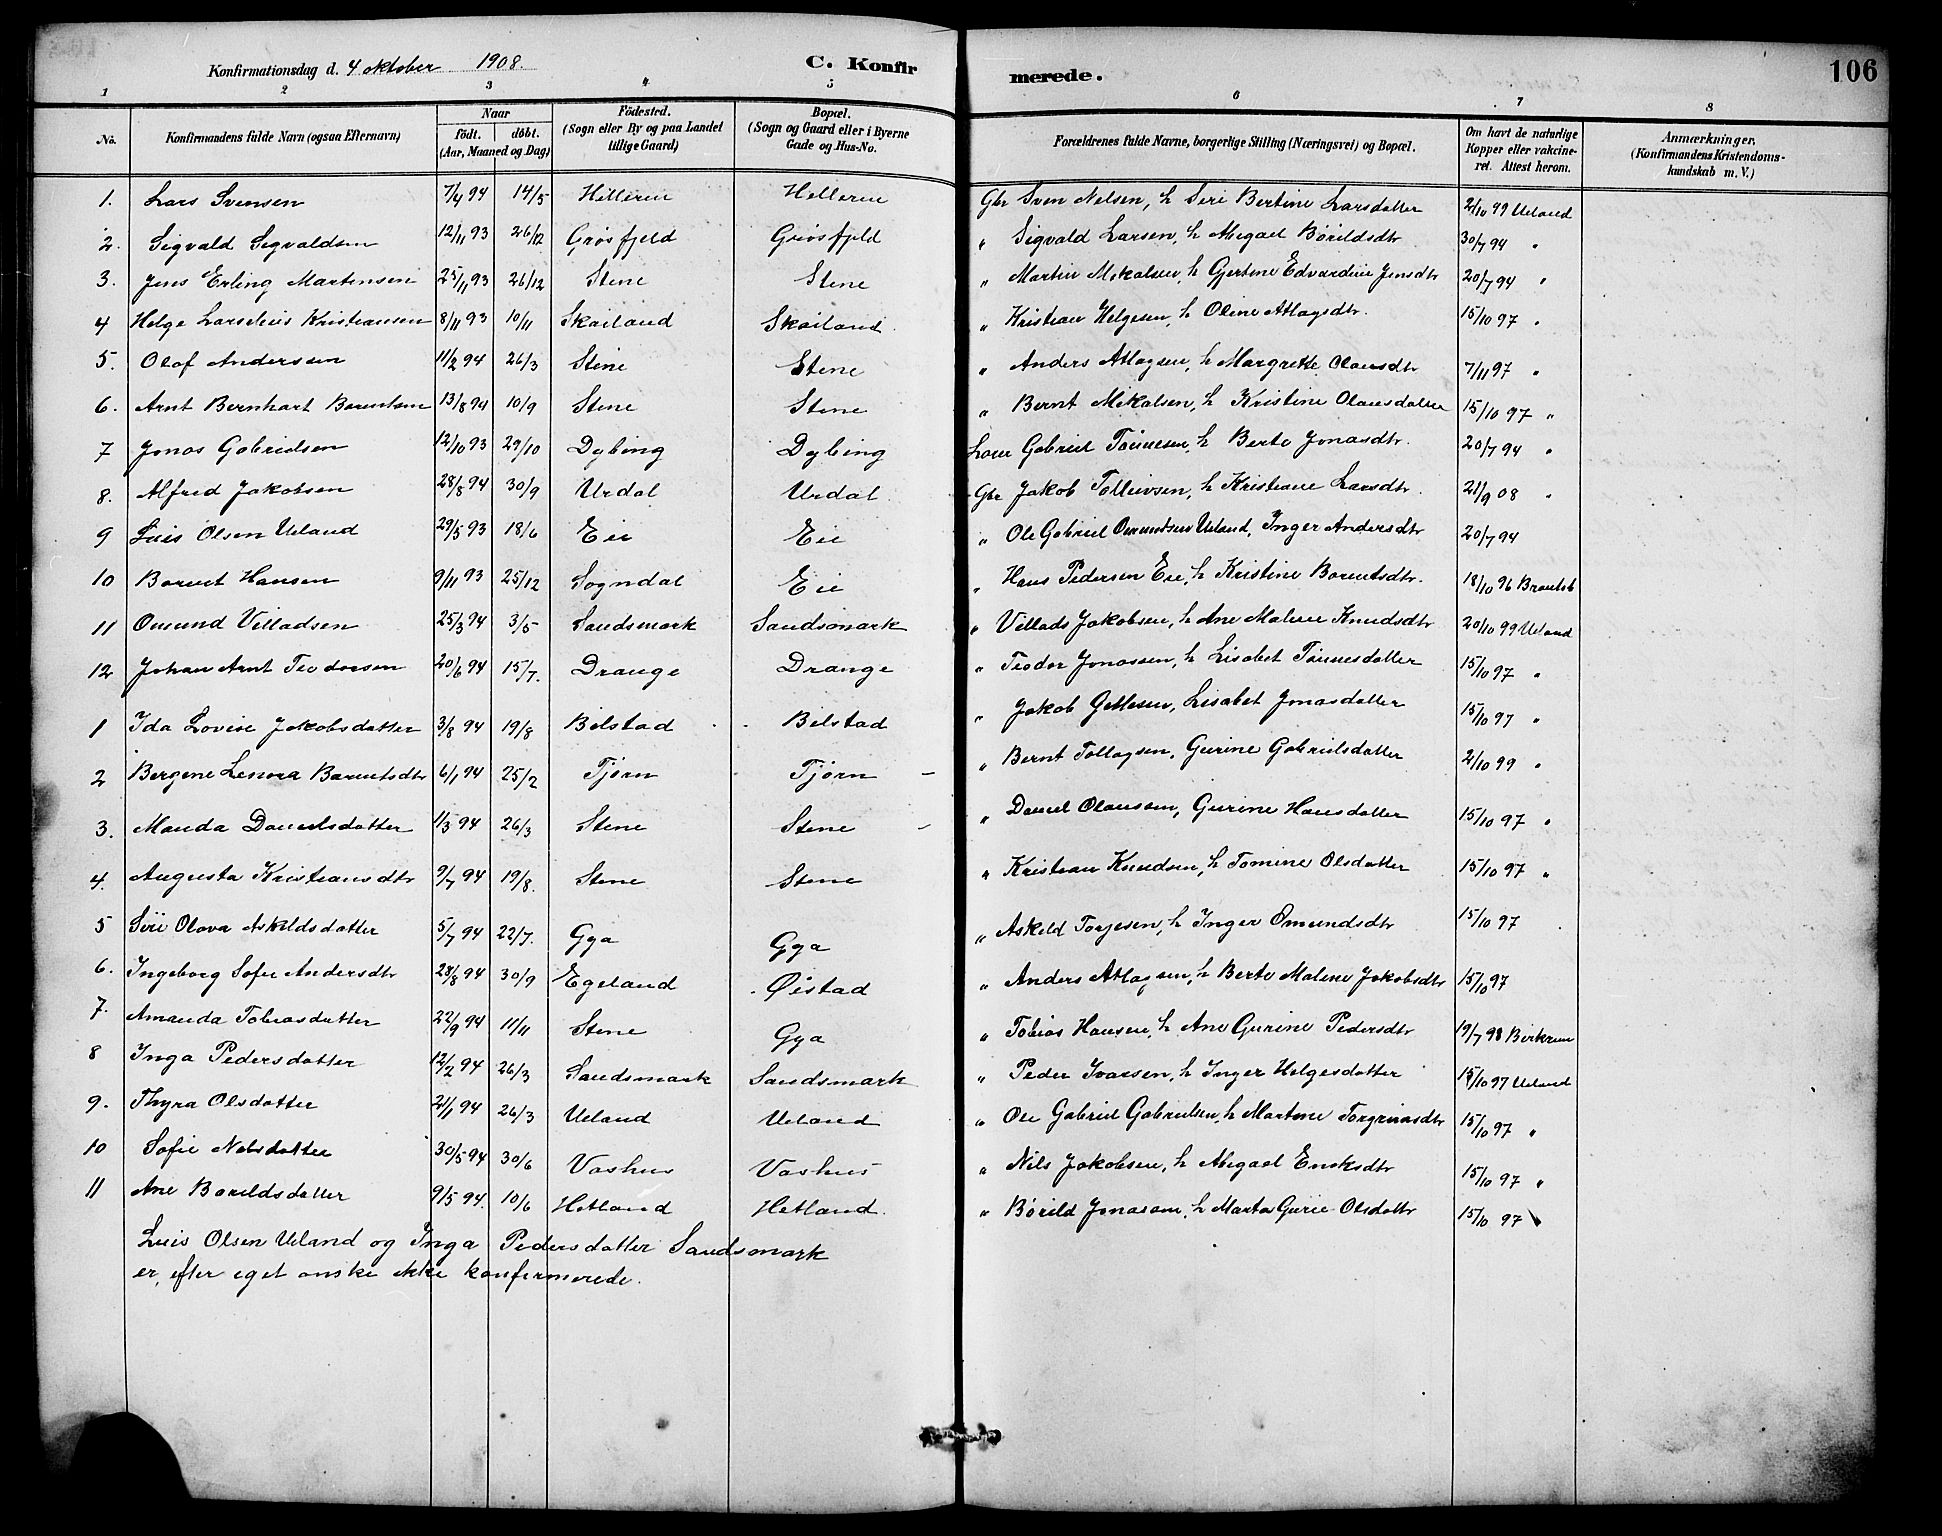 Konfirmationsdag d. 4 oktober 1908.
C. Konfirmerede.
106
1 2 3 4 5 6 7 8
No. Konfirmandens fulde Navn (ogsaa Efternavn) Naar födt. döbt. (Aar, Maaned og Dag) Födested. (Sogn eller By og paa Landet tillige Gaard) Bopæl. (Sogn og Gaard eller i Byerne Gade og Hus-No. Forældrenes fulde Navne, borgerlige Stilling (Næringsvei) og Bopæl. Om havt de naturlige Kopper eller vakcineret. Attest herom. Anmærkninger. (Konfirmandens Kristendomskundskab m. V.)
1. Lars Svensen 7/4 94 14/5 Helleren Helleren Gbr Sven Nelsen, h Seri Bertine Larsdatter 2/10 99 Ueland
2. Sigvald Sigvaldsen 12/11 93 26/12 Grøsfjeld Grøsfjeld " Sigvald Larsen, h Abigael Børildsdtr 30/7 94 "
3. Jens Erling Martinsen 25/11 93 26/12 Stene Stene " Martin Mikalsen, h Gjertine Edvardine Jensdtr 20/7 94 "
4 Helge Larselius Kristiansen 8/11 93 10/11 Skailand Skailand " Kristian Helgesen, h Oline Atlagsdtr. 15/10 97 "
5. Olaf Anderssen 11/2 94 26/3 Stene Stene " Anders Atlagsen, h Margrette Olausdtr 7/11 97 "
6. Arnt Bernhart Berntsen 13/8 94 10/9 Stene Stene " Bernt Mikalsen, h Kristine Olausdatter 15/10 97 "
7 Jonas Gabrielsen 12/10 93 29/10 Dybing Dybing Gabriel Tønnesen, h Berte Jonasdtr. 20/7 94 "
8. Alfred Jakobsen 28/8 94 30/9 Urdal Urdal Gbr Jakob Tolleivsen, h Kristiane Larsdtr. 21/9 08 "
9 Luis Olsen Ueland 29/5 93 18/6 Eie Eie " Ole Gabriel Omundsen Ueland, Inger Andersdtr 20/7 94
10 Berent Hansen 9/11 93 25/12 Sogndal Eie " Hans Pedersen Eie, h Kristine Berentsdtr. 18/10 96
11 Omund Villadsen 25/3 94 3/5 Sandsmark Sandsmark " Villads Jakobsen, h Ane Malene Knudsdtr 20/10 99 Ueland
12 Johan Arnt Teodorsen 20/6 94 15/7. Drange Drange " Teodor Jonassen, h Lisabet Tønnesdatter 15/10 97 "
1 Ida Lovise Jakobsdatter 3/8 94 19/8 Bilstad Bilstad " Jakob Gettesen, Lisabet Jonasdatter 15/10 97 "
2 Bergene Lenora Berntsdtr 6/1 94 25/2 Tjørn Tjørn " Bernt Tollagsen, Gurine Gabrielsdatter 2/10 99 "
3. Manda Danielsdatter 11/3 94 26/3 Stene Stene " Daniel Olaussen, Gurine Hansdatter 15/10 97 "
4. Augusta Kristiansdtr 9/7 94 19/8. Stene Stene " Kristian Knudsen, h Tomine Olsdatter 15/10 97 "
5 Siri Olava Askildsdatter 5/7 94 22/7. Gya Gya " Askild Torjesen, h Inger Omundsdtr 15/10 97
6. Ingeborg Sofie Andersdtr 28/8 94 30/9 Egeland Øistad " Anders Atlagsen, h Berte Malene Jakobsdtr 15/10 97
7. Amanda Tobiasdatter 22/9 94 11/11 Stene Gya " Tobias Hansen, h Ane Gurine Pedersdtr 19/7 98 Birkrem
8 Inga Pedersdatter 12/2 94 26/3 Sandsmark Sandsmark " Peder Ivarsen, h Inger Helgesdatter 15/10 97 Ueland
9. Thyra Olsdatter 21/1 94 26/3 Ueland Ueland " Ole Gabriel Gabrielsen, h Martine Torgrimsdtr 15/10 97 "
10 Sofie Nelsdatter 30/5 94 30/6 Vashus Vashus " Nils Jakobsen, h Abigael Eriksdtr 15/10 97 "
11 Ane Børildsdatter 9/5 94. 10/6 Hetland Hetland. " Børild Jonassen, h Marta Gurie Olsdattr 15/10 97 "
Luis Olsen Ueland og Inga Pedersdatter Sandsmark
er, efter eget ønske ikke konfirmerede.